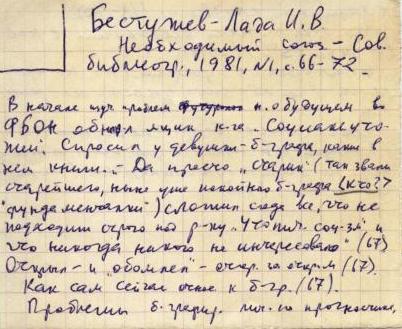 Бестужев-Лада И.В.
Необходимый союз – Сов.
библиогр., 1981, N1, с. 66-72.
В начале изуч. проблем н. о будущем в
ФБОН обнар. ящик к-га "Социалис. уто-
пии". Спросил у девушки-б-графа, какие в
нем книги. – Да просто "старик" (так звали
старейшего, ныне уже покойного б-графа (кто?)
"фундаменталки") сложил сюда все, что не
подходит строго под р-ку "Утопич. соц-зм" и
что никогда никого не интересовало" (67)
Открыл – и "обомлел" – (67).
Как сам сейчас относ. к б-гр. (67).
Проблемы б-графир. лит. по прогностике,